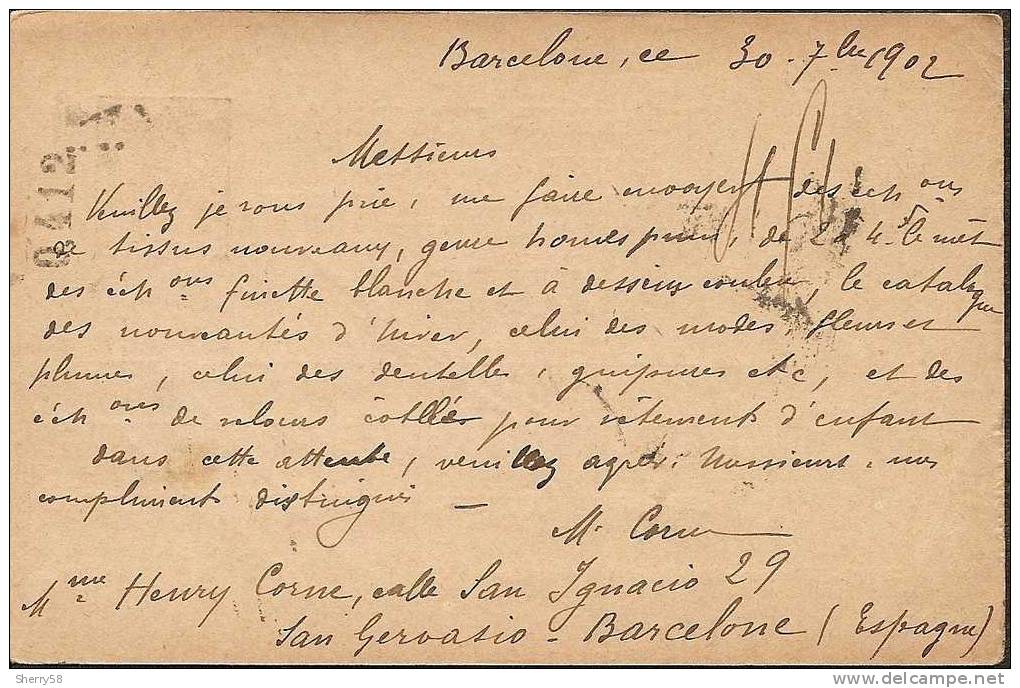 Barcelone, ce 30 - 7bre 1902
Messieurs
Veuillez je vous prie, me faire envoyer des échons
de tissus nouveaux, genre homespun, de 2 à 4f le mèt
des échons finette blanche et à dessins couleur, le catalogue
des nouveautés d'hiver, celui des modes, fleurs et
plumes, celui des dentelles, guipures etc, et des
échons de velours côtelé pour vêtement d'enfant
dans cette attente, veuillez agréer, Messieurs, mes
compliments distingués —
M. Corne
Mme Henry Corne, calle San Ignacio 29
San Gervasio - Barcelone (Espagne)
0412
Sherry58
delcampe.net